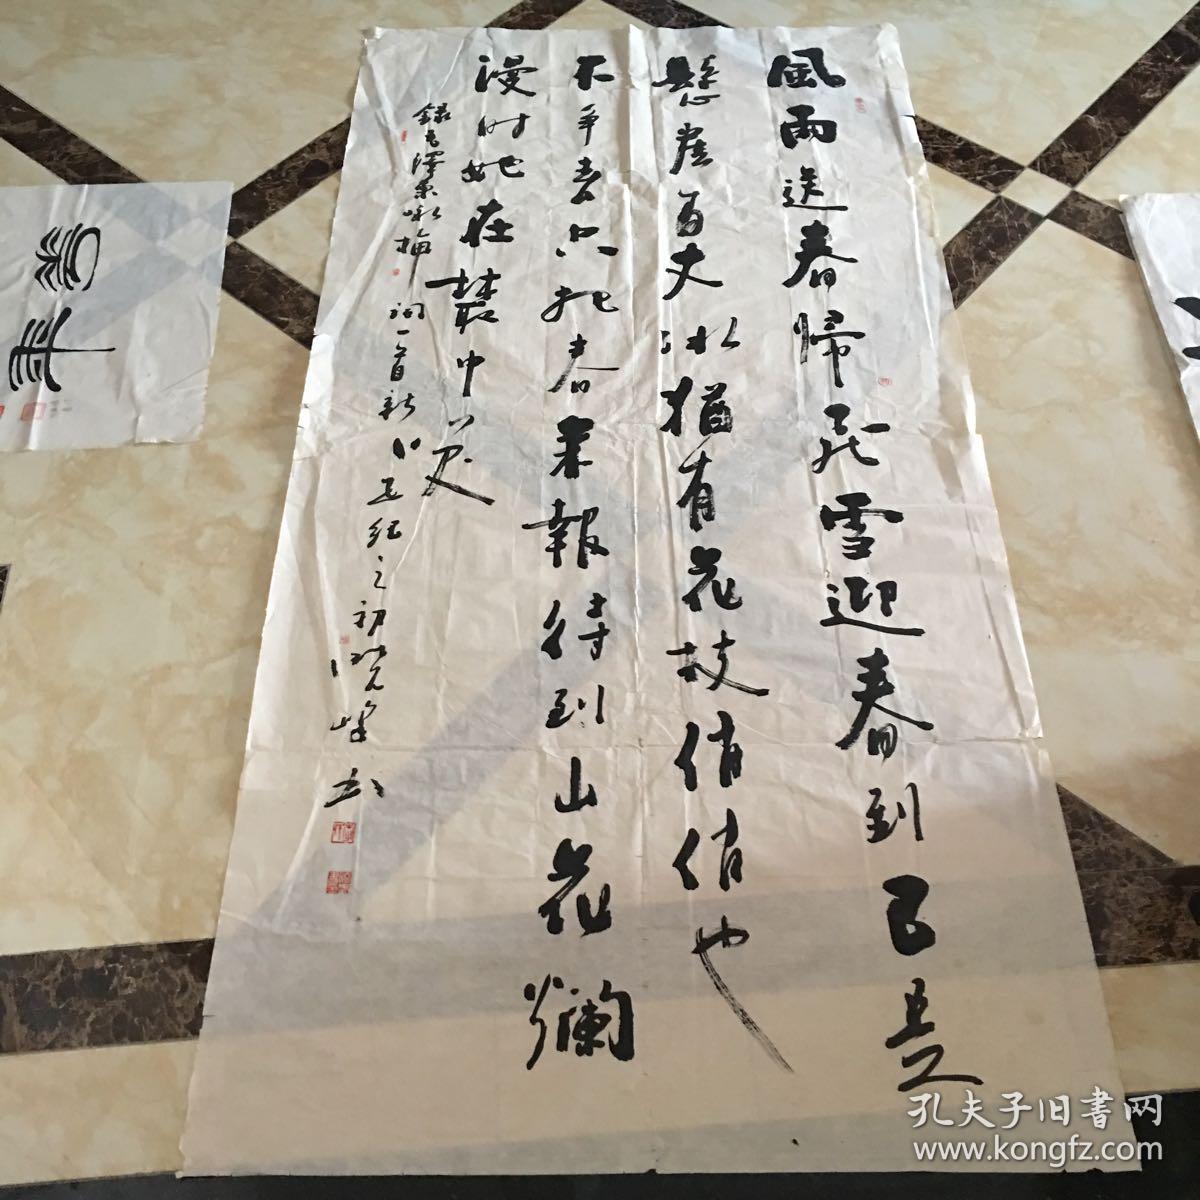 風雨送春帰飛雪迎春到已是
懸崖百丈冰猶有花枝俏俏也
不争春只把春来報待到山花爛
漫时她在叢中笑
録毛澤東咏梅词一首新世纪之初晓峰书
孔夫子旧書网
www.kongfz.com